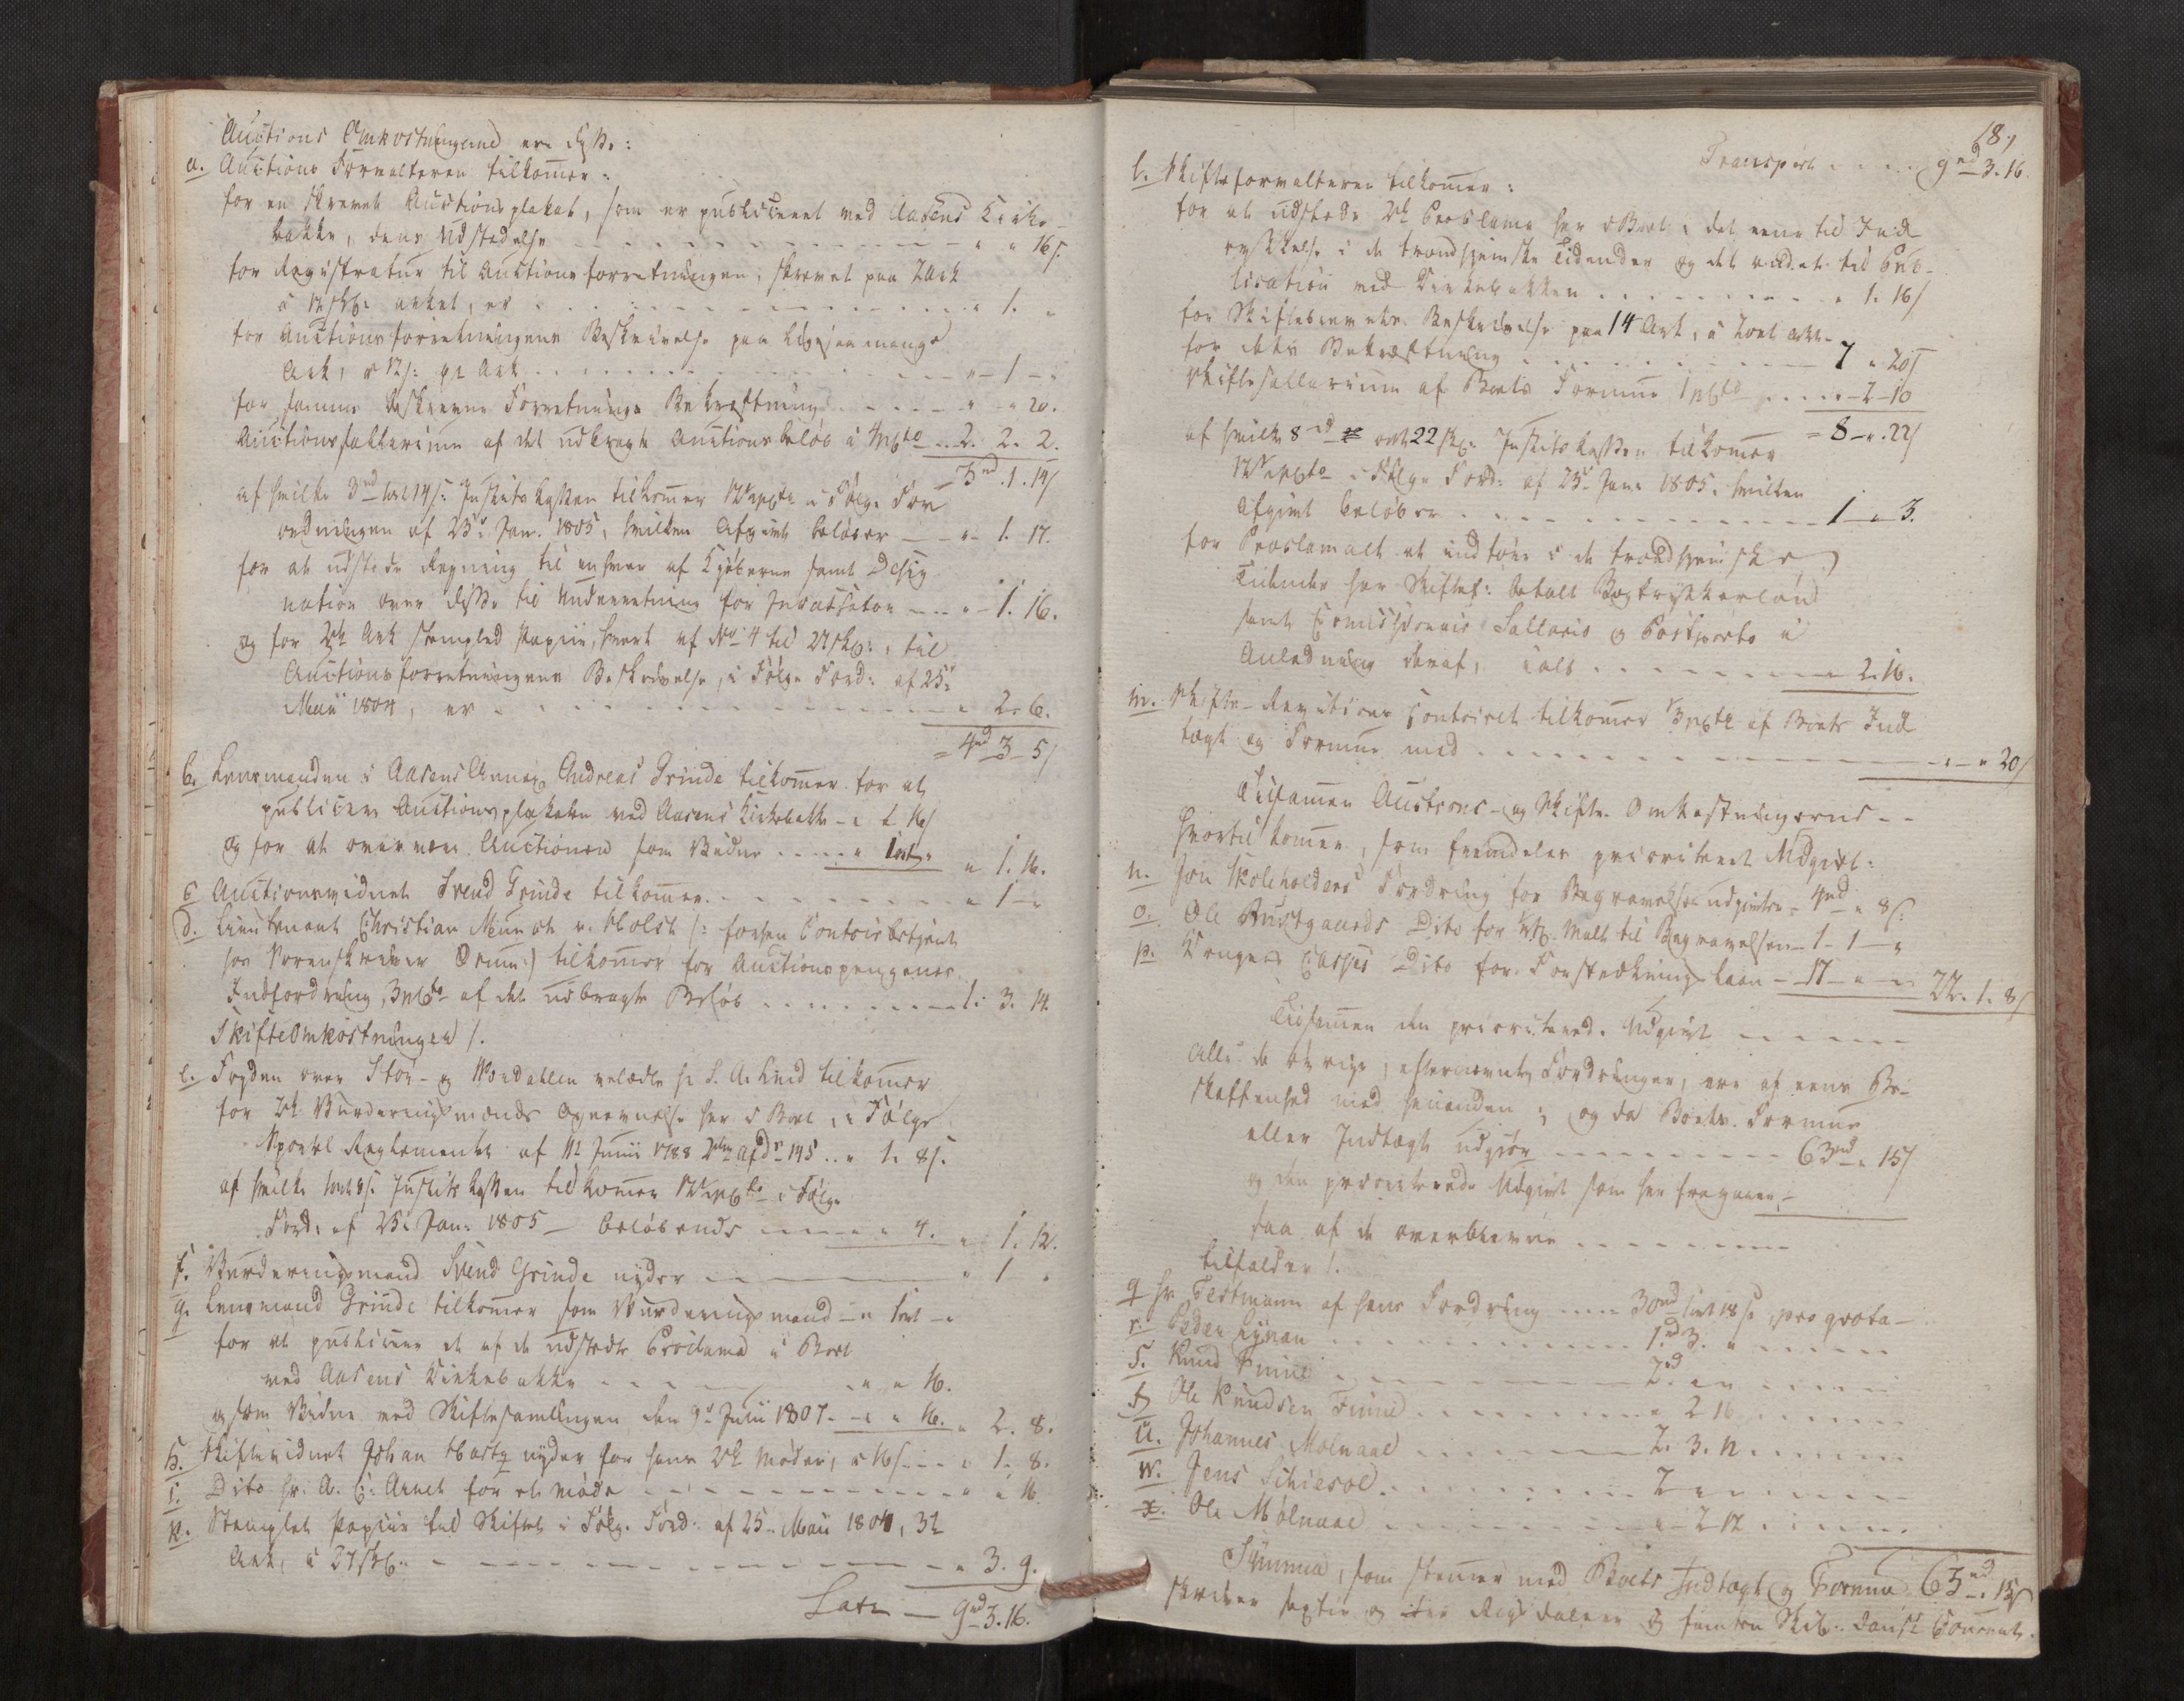 Auctions Omkostningerne ere disse:
a. Auctions Forvalteren tilkommer:
for en skrevet Auctionsplakat, som er publiceret ved Aasens Kirke-
bakke, dens Udstedelse - - - " " 16 s.
for Registratur til Auctionsforretningen, skrevet paa 2 Ark
à 12 skl: arket, er - - - " 1. "
for Auctionsforretningens Beskrivelse paa ligesaa mange
Ark, à 12 s: pr Ark - - - " 1 "
for samme beskrevne Forretnings Bekræftning - - - " " 20.
Auctionssallarium af det udbragte Auctionsbeløb à 4 pCto .. 2. 2. 2.
3 rd. 1. 14 s
af hvilke 3 rd 1 ort 14 s: Justitskassen tilkommer 12½ pCto i Følge For
ordningen af 23de Jan. 1805, hvilken Afgivt beløber - - " 1. 17.
for at udstede Regning til enhver af Kjøberne samt Desig
nation over disse til Underretning for Incassator - - " 1. 16.
og for 2de Ark stemplet Papiir, hvert af No 4 til 27 skl:, til
Auctionsforretningens Beskrivelse, i Følge Ford: af 25de
Maii 1804, er - - - " 2. 6.
= 4 rd 3 - 5 s
b. Lensmanden i Aasens Annex Andreas Grinde tilkommer for at
publicere Auctionsplakaten ved Aasens Kirkebakke - " " 16 s
og for at overvære Auctionen som Vidne - - - " 1 ort " " 1. 16.
c Auctionsvidnet Svend Grinde tilkommer - - - " 1 - "
d. Lieutenant Christian Munch v. Holst (: forhen Contoirbetjent
hos Sorenskriver Drum:) tilkommer for Auctionspengenes
Indfordring, 3 pCto af det udbragte Beløb - - - 1. 3. 14.
Skifteomkostninger /.
e. Fogden over Stør- og Værdahlen velædle hr L. A. Lind tilkommer
for 2de Vurderingsmænds Opnævnelse her i Boet, i Følge
Sportel Reglementet af 11te Junii 1788 2den Afd: 145 .. " 1. 8 s.
af hvilke 1 ort 8 s. Justits kassen tilkommer 12½ pCto i Følge
Ford: af 23de Jan: 1805 - beløbende - - - " " 4. " 1. 12.
f. Vurderingsmand Svend Grinde nyder - - - " 1 "
g. Lensmand Grinde tilkommer som Vurderingsmand - " 1 ort - "
for at publicere et af de udstedte Proclama i Boet
ved Aasens Kirkebakke - - - " " 16.
og som Vidne ved Skiftesamlingen den 9de Julii 1807 - " " 16. " 2. 8.
h. Skiftevidnet Johan nyder for hans 2de Møder, à 16 s - - " 1. 8.
i. Dito hr: A. C: for et møde - - - " " 16
k. Stemplet Papiir til Skiftet i Følge Ford: af 25de Maii 1804, 3de
Ark, à 27 skl: - - - " 3. 9.
Lateris — 9 rd 3. 16.
187
Transport - - - 9 rd 3. 16.
l. Skifteforvalteren tilkommer:
for at udstede 2de Proclama her i Boet: det eene til Ind
rykkelse i de trondhjemske Tidender og det andet til Pub-
lication ved Kirkebakken - - - " 1. 16 s
for Skiftebrevets Beskrivelse paa 14 Ark, à 2 ort arket
for dets Bekræftning - - - 7 " 20 s
Skiftesallarium af Boets Formue 1 pCto - - - " 2 - 10
= 8 - " . 22 s
af hvilke 8 rd 22 skl: Justitskassen tilkommer
12½ pCto i Følge Ford: af 23de Jan: 1805, hvilken
Afgivt beløber - - - 1 - " 3.
for Proclamat at indføre i de trondhjemske
Tidender har Skiftef: betalt Bogtrykkerløn
samt Commissionair Sallario og Postporto i
Anledning deraf, i alt - - - " 2. 16.
m. Skifte-Revisions Contoiret tilkommer ⅓ pCto af Boets Ind
tægt og Formue med - - - " - " 20 s
Tilsammen Auctions- og Skifte Omkostningerne - -
Hvortil kommer, som fremdeles prioriteret Udgivt:
n. Jon Skoleholders Fordring for Begravelses udgivter - 4 rd " 8 s:
o. Ole Rustgaards Dito for Malt til Begravelsen - 1 - 1 - "
p. Krigens Casses Dito for Forstrækning Laan - 17 - " - " 22. 1. 8 s
Tilsammen den prioriterede Udgivt - - -
Alle de øvrige, efternævnte Fordringer, ere af eens Be-
skaffenhed med hinanden; og da Boets Formue
eller Indtægt udgiør - - - 63 rd " 15 s
og den prioriterede Udgivt som her fragaaer, -
saa af de overblevne - - -
tilfalder /.
q hr Festmann af hans Fordring - - 30 rd 1 ort 18 s pro qvota -
r. Peder - - - 1 rd 3. " - - -
s. Knud Finne - - - 2 rd " " - - -
t Ole Knudsen Finne - - - " 2 16 - - -
u. Johannes Molnaae - - - 2. 3. 12 - - -
w. Jens - - - 2 " " - - -
x. Ole Mølnaae - - - " 2 12 - - -
Summa, som stemmer med Boets Indtægt og Formue, 63 rd. " . 15 s
skriver sextie og tre Rigsdaler og femten Skil: Dansk Courant.